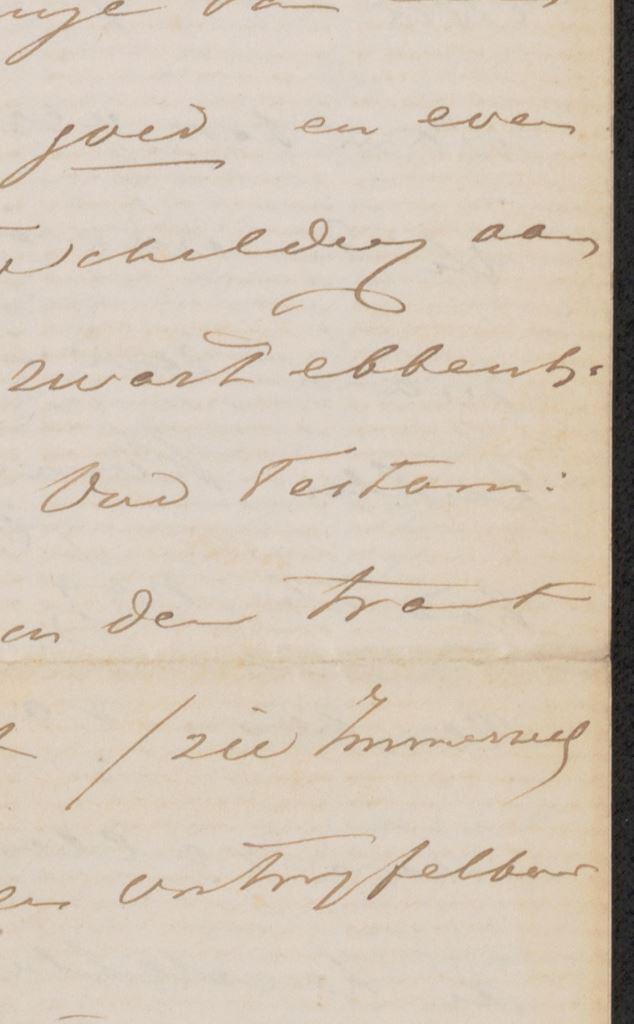 goed en even
schilderij aan
zwart ebbenh.
Oud Testam:
en den trant
/zie Immerzeel
en ontwyfelbaar